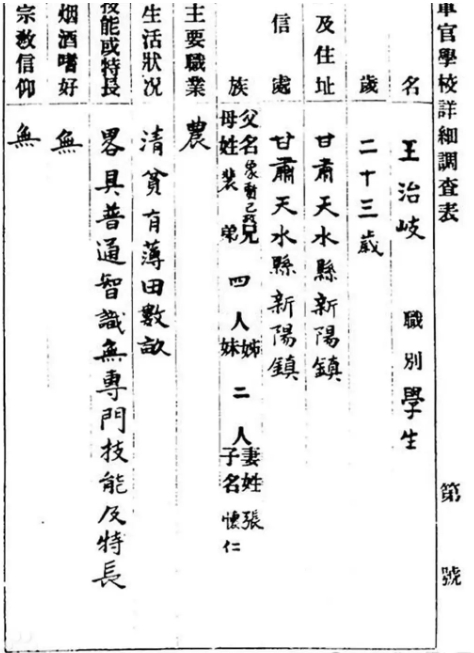 軍官學校詳細調查表 第 號
名 王治岐 職別 學生
歲 二十三歲
及住址 甘肅天水縣新陽鎮
信處 甘肅天水縣新陽鎮
族 父名 母姓裴 兄弟四人 姊妹二人 妻姓張 子名懷仁
主要職業 農
生活狀况 清貧有薄田數畝
技能或特長 畧具普通智識無專門技能及特長
烟酒嗜好 無
宗教信仰 無